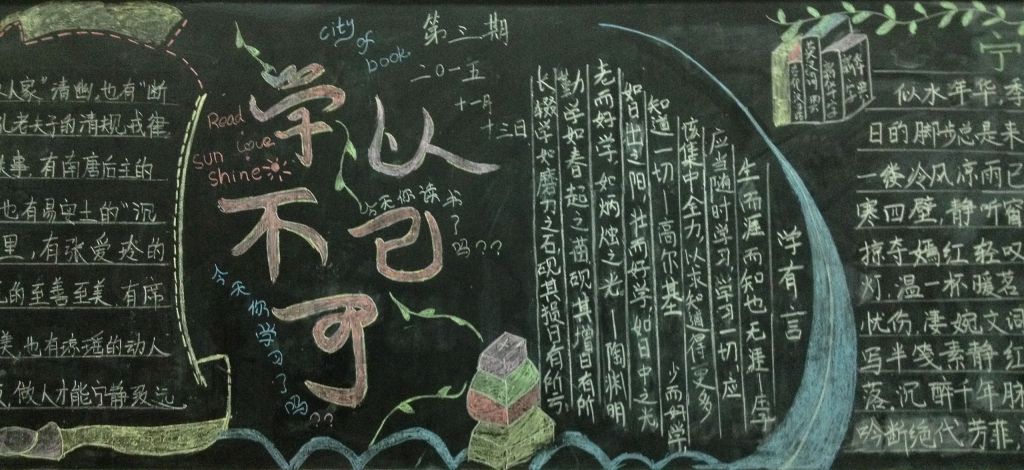 人家"清幽,也有"断
孔老夫子的清规戒律
事.有南唐后主的
也有易安士的"沉
里,有张爱玲的
的至善至美.有席
美,也有琼瑶的动人
做人才能宁静致远
city
of
book
第三期
二〇一五
十一月
十三日
Read
sun love
shine
学不可
以已
今天你读书了吗???
今天你学习了吗??
学有言
生有涯而知也无涯—庄子
应当随时学习,学习一切,应
该集中全力,以求知道得更多
知道一切—高尔基 少而好学
如日出之阳 壮而好学,如日中之光
老而好学,如炳烛之光—陶渊明
勤学如春起之苗砚其增日有所
长 辍学如磨刀之石砚其损日有所亏
宁
似水年华,季
日的脚步总是来
一缕冷风凉雨已
寒四壁,静听窗
掠夺嫣红,轻叹
灯,温一杯暖茗
忧伤,凄婉文词
写半笺素静红
落,沉醉千年脉
吟断绝代芳菲,